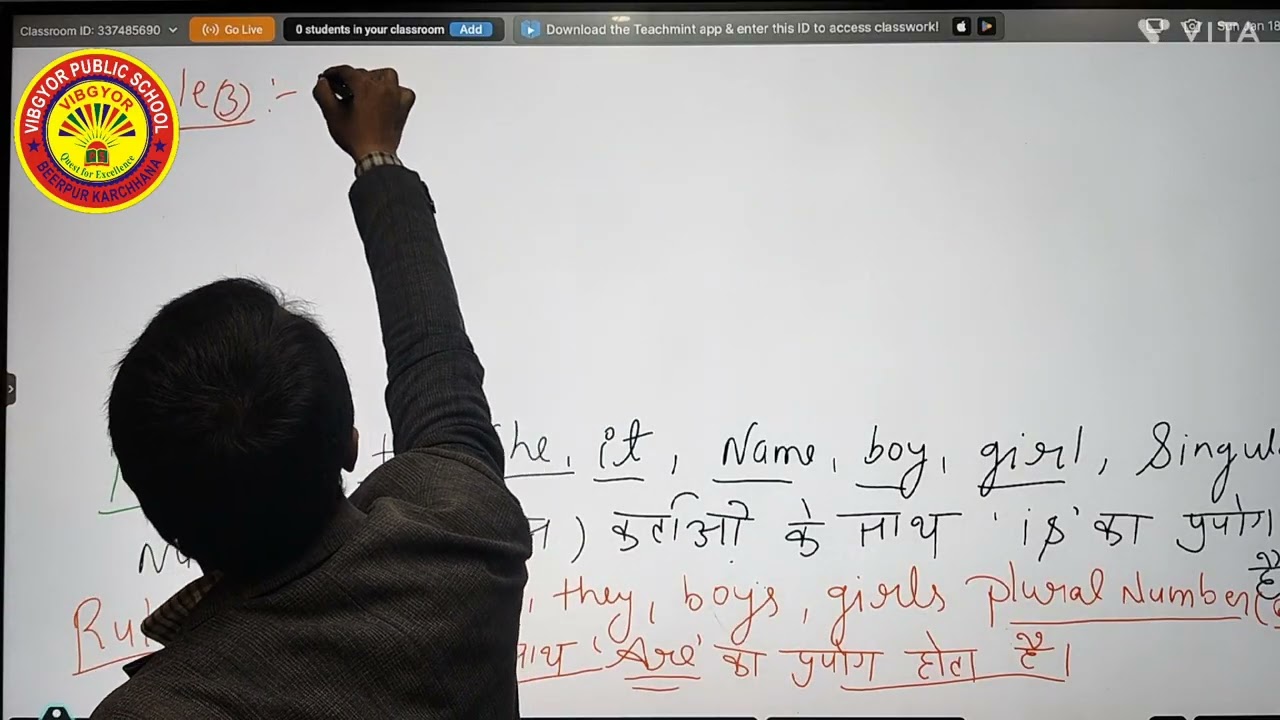 Classroom ID: 337485690 Go Live 0 students in your classroom Add Download the Teachmint app & enter this ID to access classwork! Sun Jan 18
VITA
VIBGYOR PUBLIC SCHOOL
VIBGYOR
Quest for Excellence
BEERPUR KARCHHANA
le (3) :-
he, it, Name, boy, girl, Singul
) कर्ताओ के साथ 'is' का प्रयोग
है
Ru , they, boys, girls plural Number (
साथ 'Are' का प्रयोग होता है।